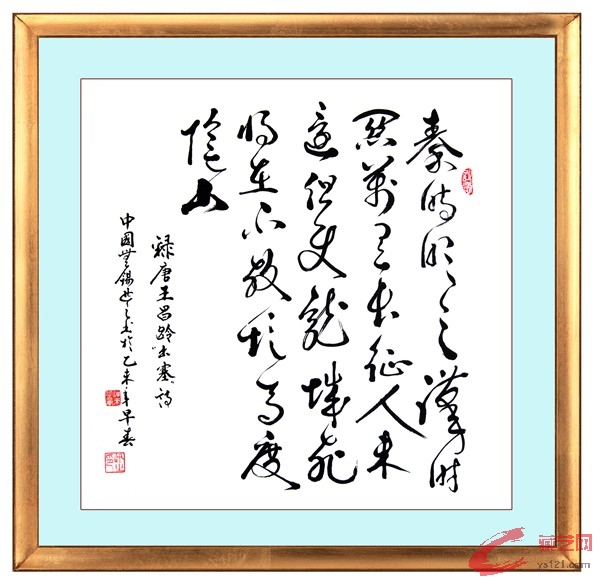 秦時明月漢時
關萬里長征人未
還但使龍城飛
將在不教胡馬度
陰山
録唐王昌齡"出塞"詩
中國無錫書於乙未年早春
藏艺网
ys121.com